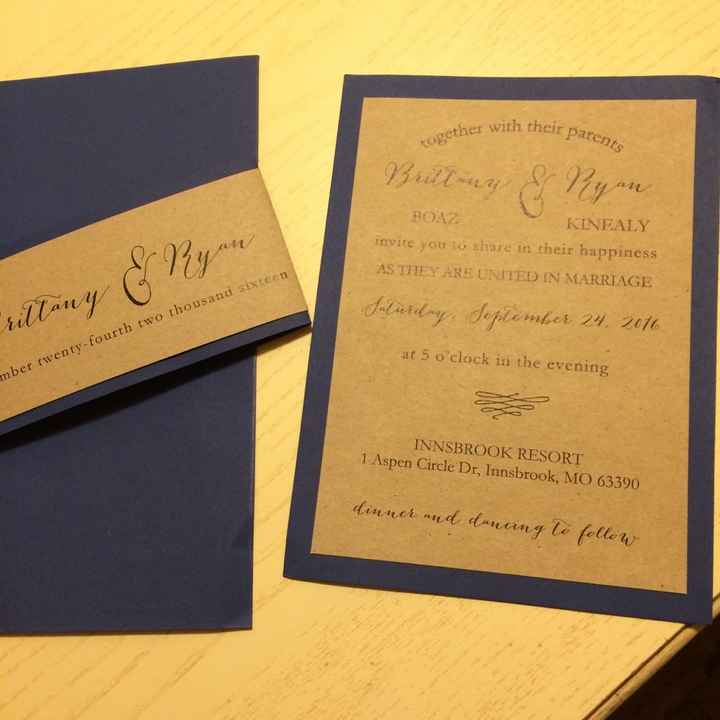 Brittany & Ryan
twenty-fourth two thousand sixteen
together with their parents
Brittany & Ryan
BOAZ KINEALY
invite you to share in their happiness
AS THEY ARE UNITED IN MARRIAGE
Saturday, September 24, 2016
at 5 o'clock in the evening
INNSBROOK RESORT
1 Aspen Circle Dr, Innsbrook, MO 63390
dinner and dancing to follow